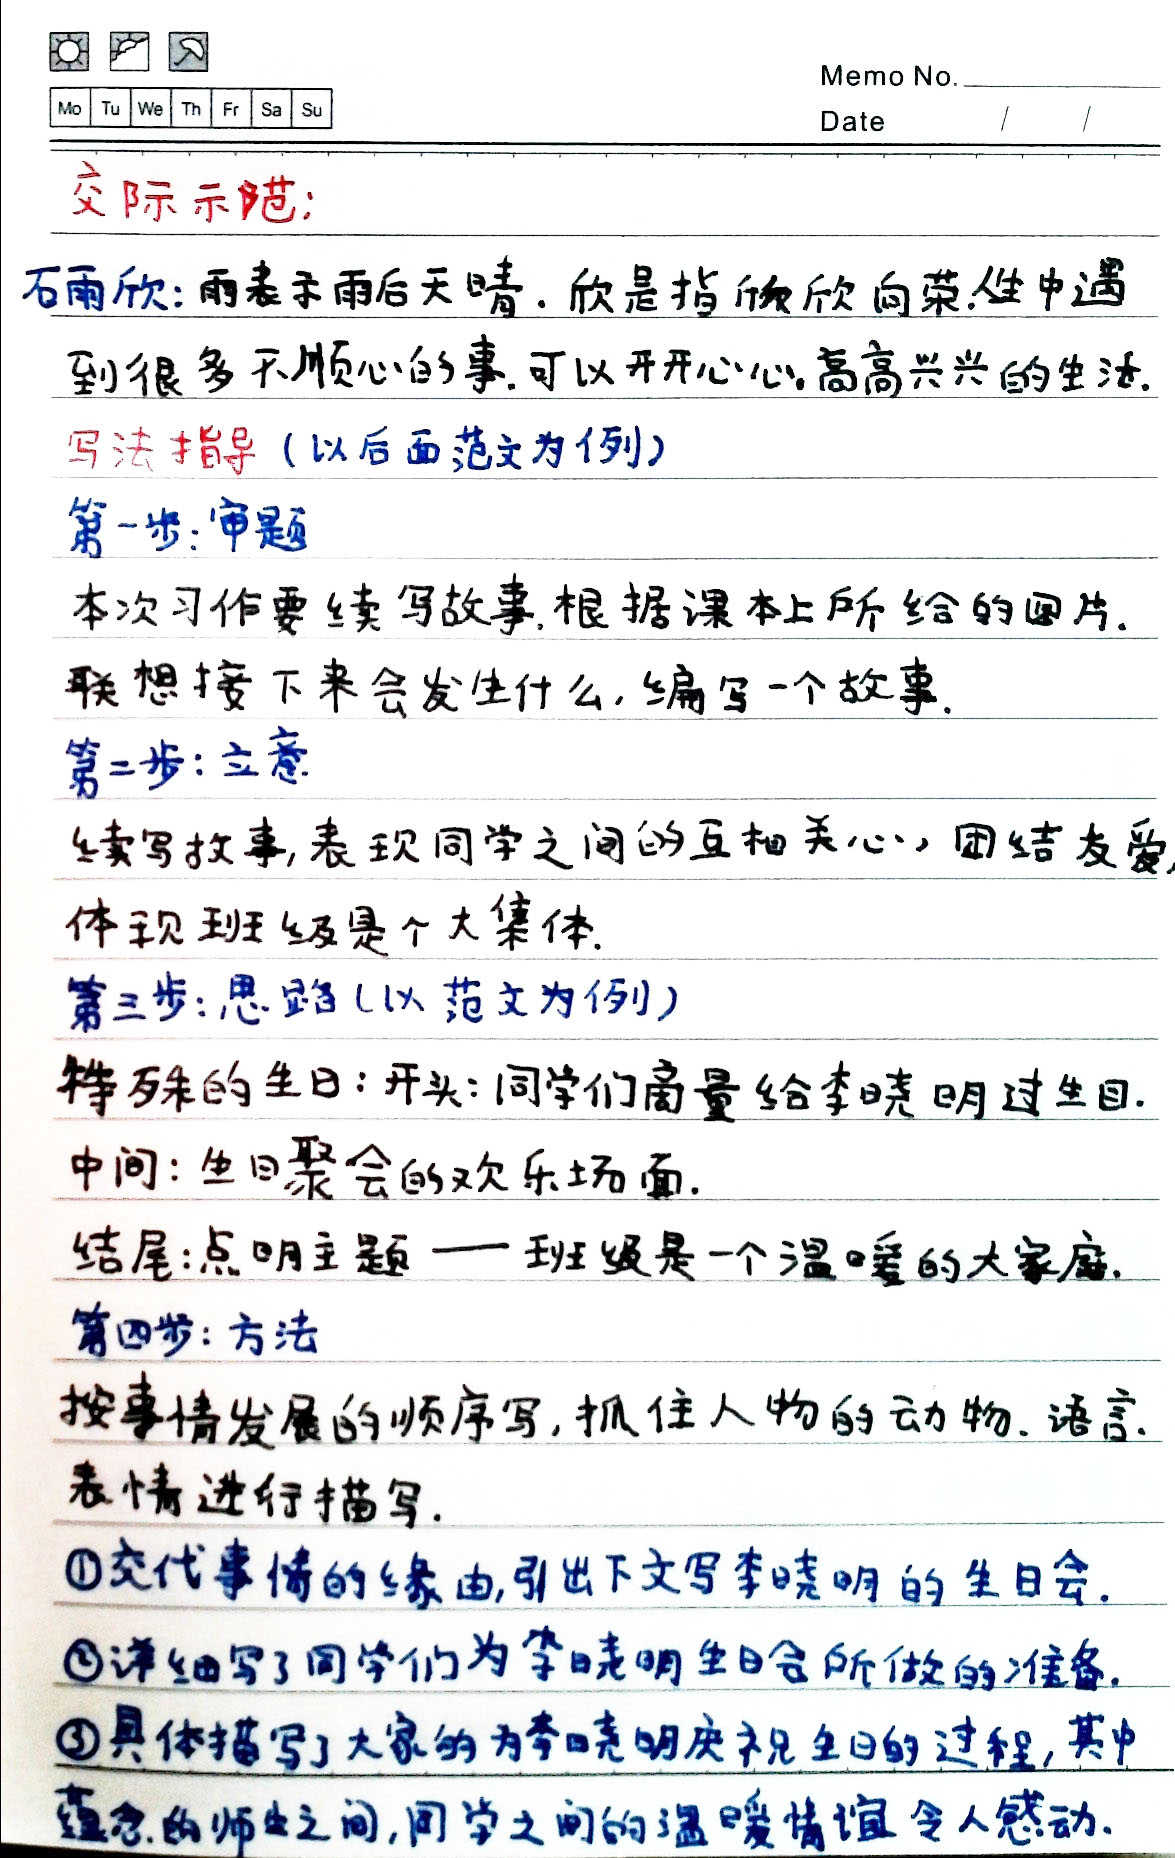 Memo No.
Mo Tu We Th Fr Sa Su
Date / /
交际示范:
石雨欣:雨表示雨后天晴.欣是指欣欣向荣.人生中遇
到很多不顺心的事.可以开开心心.高高兴兴的生活.
写法指导(以后面范文为例)
第一步:审题
本次习作要续写故事.根据课本上所给的图片.
联想接下来会发生什么,编写一个故事.
第二步:立意.
续写故事,表现同学之间的互相关心,团结友爱,
体现班级是个大集体.
第三步:思路(以范文为例)
特殊的生日:开头:同学们商量给李晓明过生日.
中间:生日聚会的欢乐场面.
结尾:点明主题——班级是一个温暖的大家庭.
第四步:方法
按事情发展的顺序写,抓住人物的动物.语言.
表情进行描写.
①交代事情的缘由,引出下文写李晓明的生日会.
②详细写了同学们为李晓明生日会所做的准备.
③具体描写了大家的为李晓明庆祝生日的过程,其中
蕴含的师生之间,同学之间的温暖情谊令人感动.